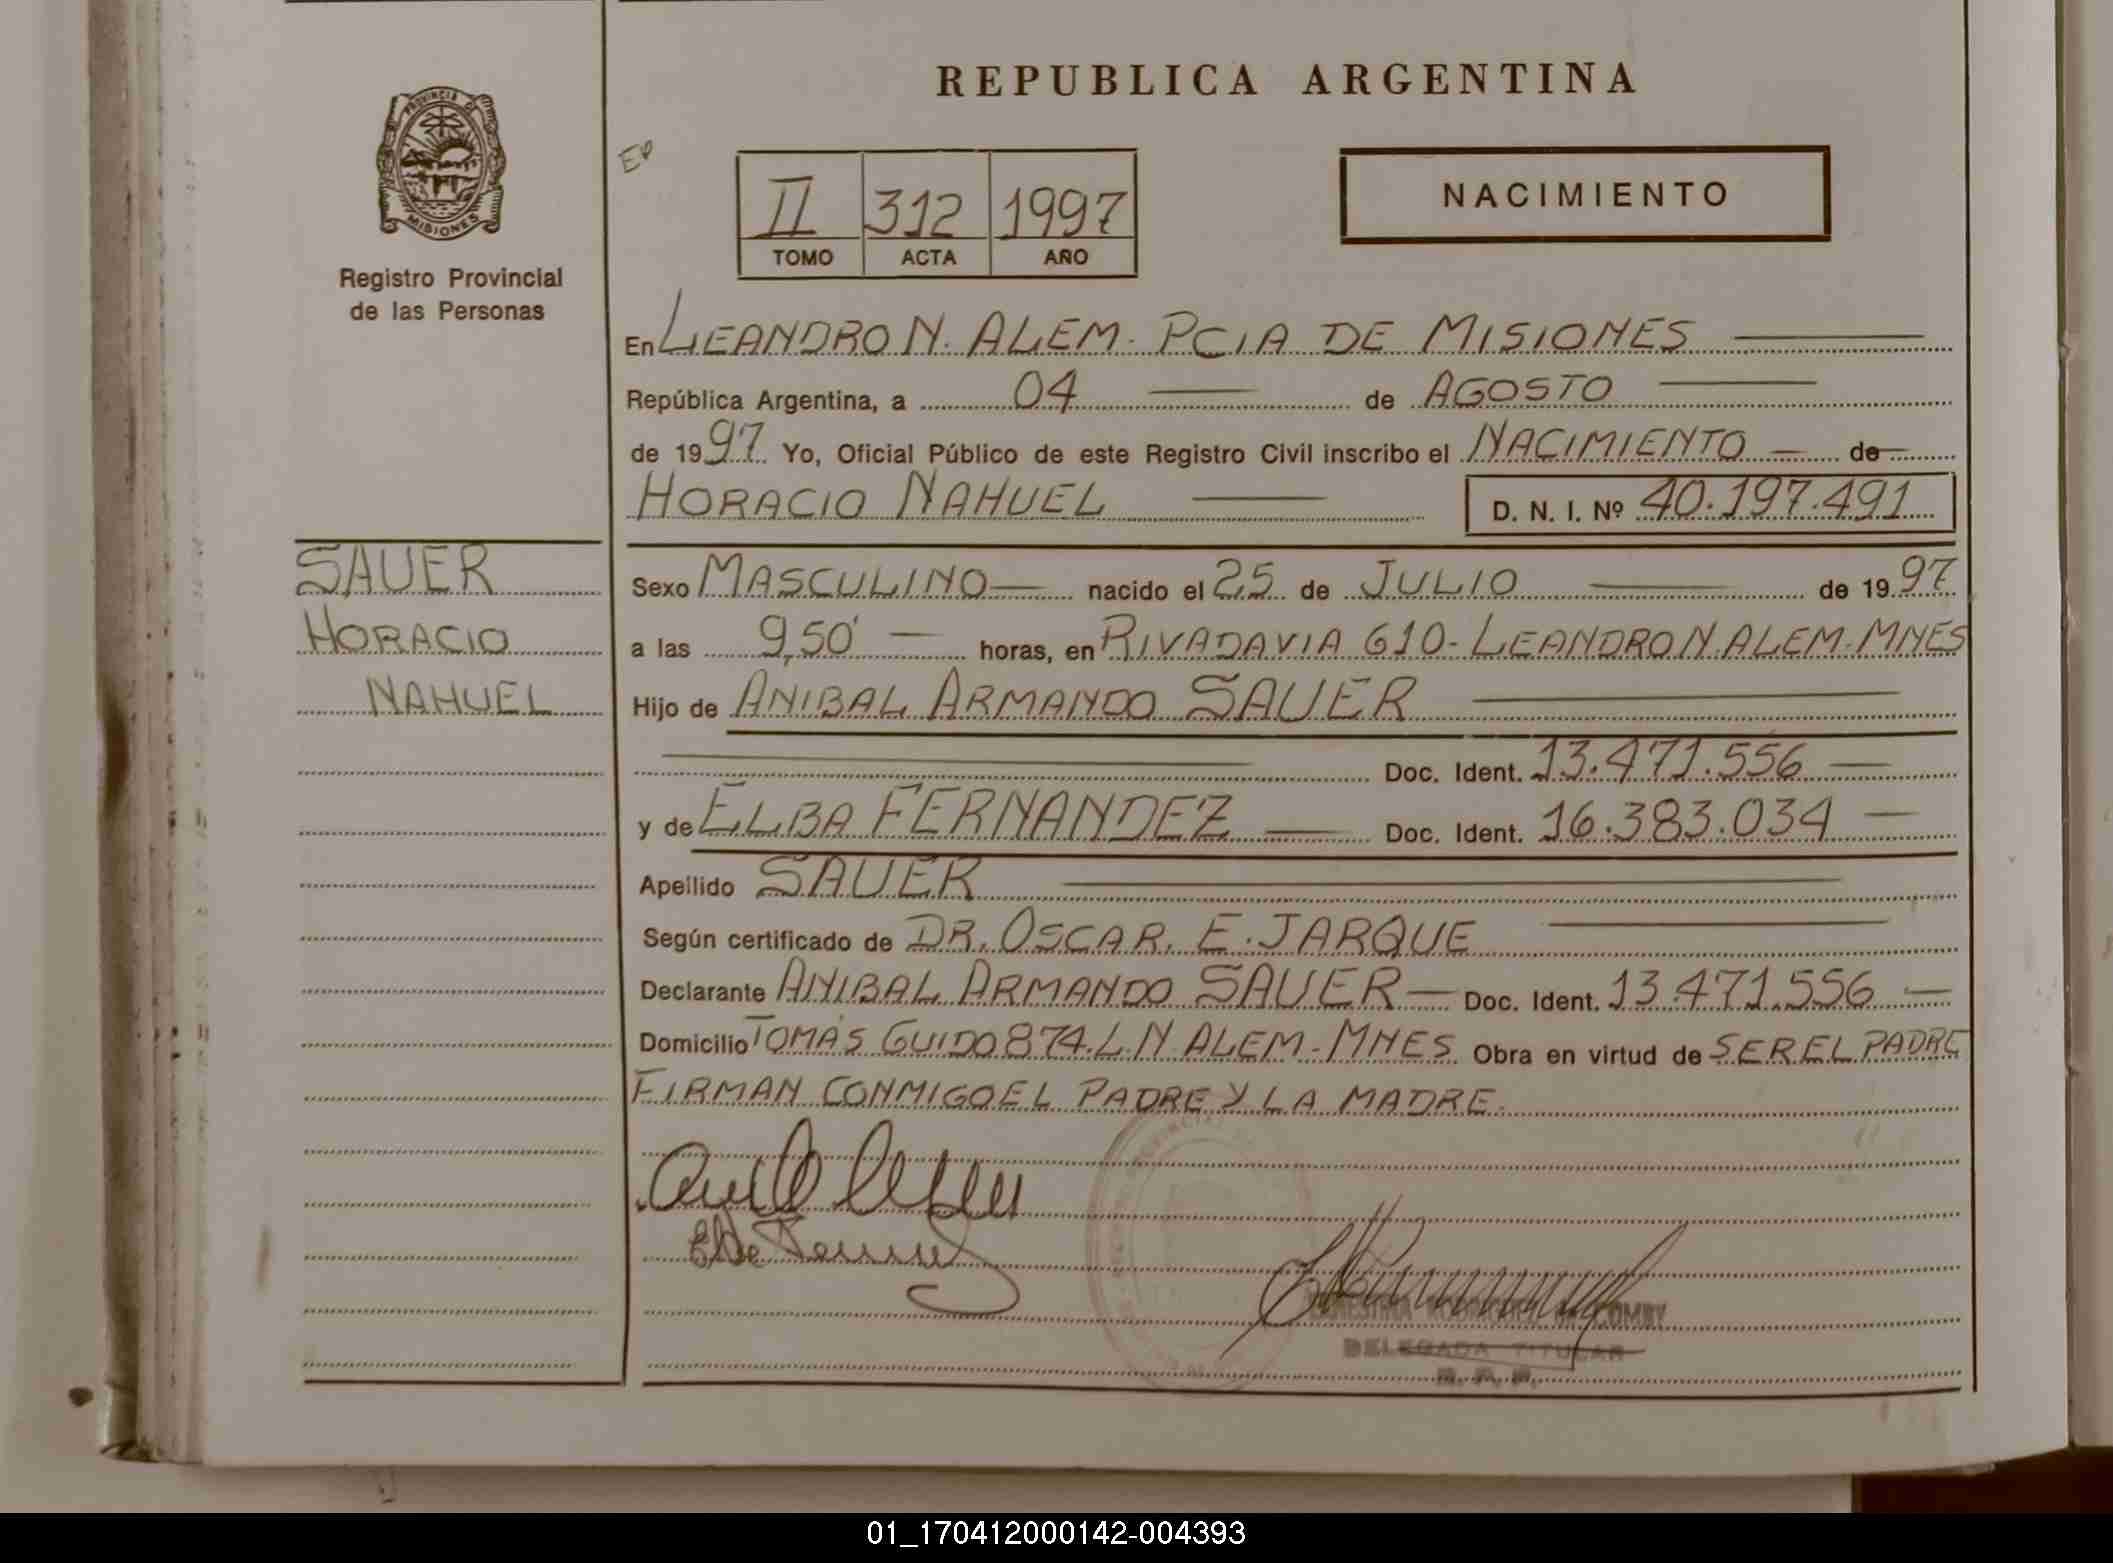 REPUBLICA ARGENTINA
PROVINCIA D
MISIONES
Registro Provincial
de las Personas
EP
II 312 1997
TOMO ACTA AÑO
NACIMIENTO
En LEANDRO N. ALEM. PCIA DE MISIONES
República Argentina, a 04 de AGOSTO
de 1997 Yo, Oficial Público de este Registro Civil inscribo el NACIMIENTO de
HORACIO NAHUEL D. N. I. Nº 40.197.491
SAUER
HORACIO
NAHUEL
Sexo MASCULINO nacido el 25 de JULIO de 1997
a las 9,50' horas, en RIVADAVIA 610- LEANDRO N. ALEM-MNES
Hijo de ANIBAL ARMANDO SAUER
Doc. Ident. 13.471.556
y de ELBA FERNANDEZ Doc. Ident. 16.383.034
Apellido SAUER
Según certificado de DR. OSCAR. E. JARQUE
Declarante ANIBAL ARMANDO SAUER Doc. Ident. 13.471.556
Domicilio TOMÁS GUIDO 874. L. N ALEM - MNES. Obra en virtud de SER EL PADRE
FIRMAN CONMIGO EL PADRE Y LA MADRE.
DELEGADA TITULAR
R. P. P.
01_170412000142-004393